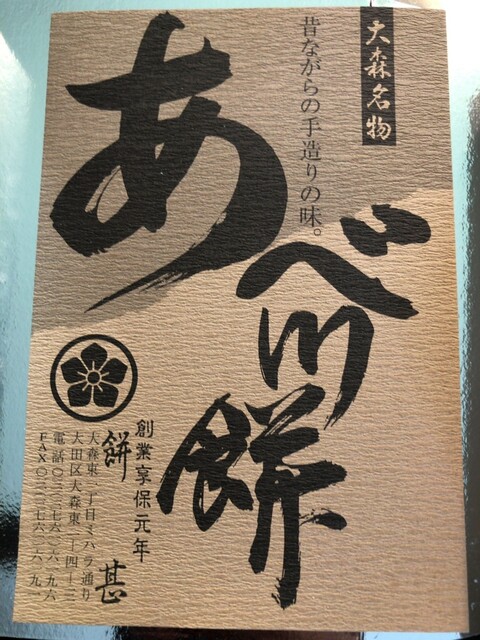 大森名物
昔ながらの手造りの味。
あべ川餅
創業享保元年
餅甚
大森東一丁目ミハラ通り
大田区大森東一ー四ー三
電話〇三（三七六一）六一九六